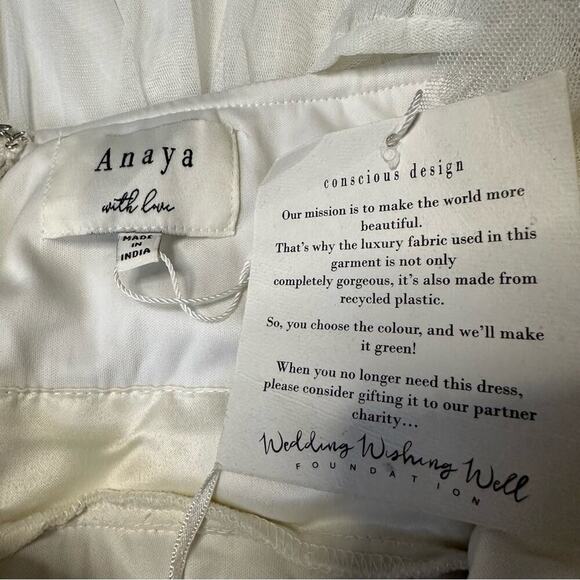 Anaya
with love
MADE
IN
INDIA
conscious design
Our mission is to make the world more
beautiful.
That's why the luxury fabric used in this
garment is not only
completely gorgeous, it's also made from
recycled plastic.
So, you choose the colour, and we'll make
it green!
When you no longer need this dress,
please consider gifting it to our partner
charity...
Wedding Wishing Well
FOUNDATION